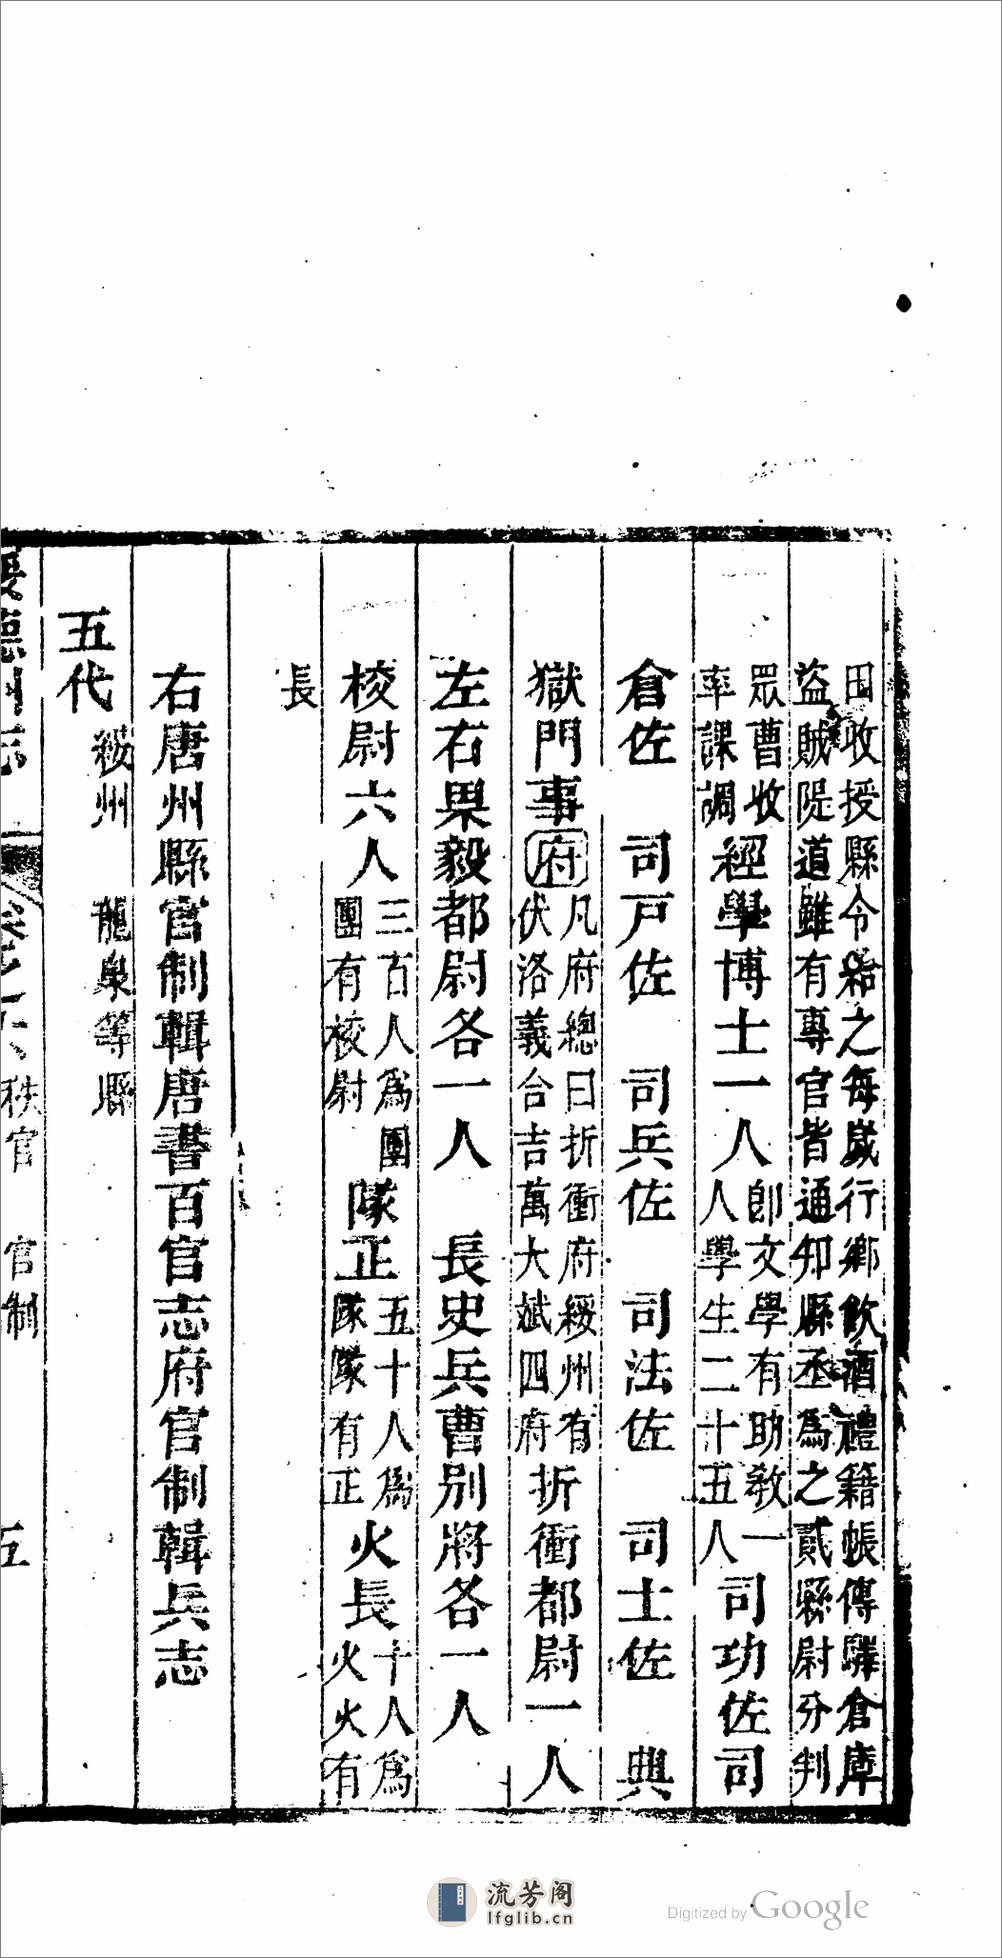 田收授縣令給之每歲行鄉飲酒禮籍帳傳驛倉庫
盜賊隄道雖有專官皆通知縣丞爲之貳縣尉分判
眾曹收
率課調
經學博士一人
卽文學有助敎一
人學生二十五人
司功佐司
倉佐 司戸佐 司兵佐 司法佐 司士佐 典
獄門事
府
凡府總曰折衝府綏州有
伏洛義合吉萬大斌四府
折衝都尉一人
左右果毅都尉各一人 長史兵曹別將各一人
校尉六人
三百人爲團
團有校尉
隊正
五十人爲
隊隊有正
火長
十人爲
火火有
長
右唐州縣官制輯唐書百官志府官制輯兵志
五代
綏州 龍泉等縣
綏德州志
卷之六
秩官 官制
五
流芳阁
lfglib.cn
Digitized by Google